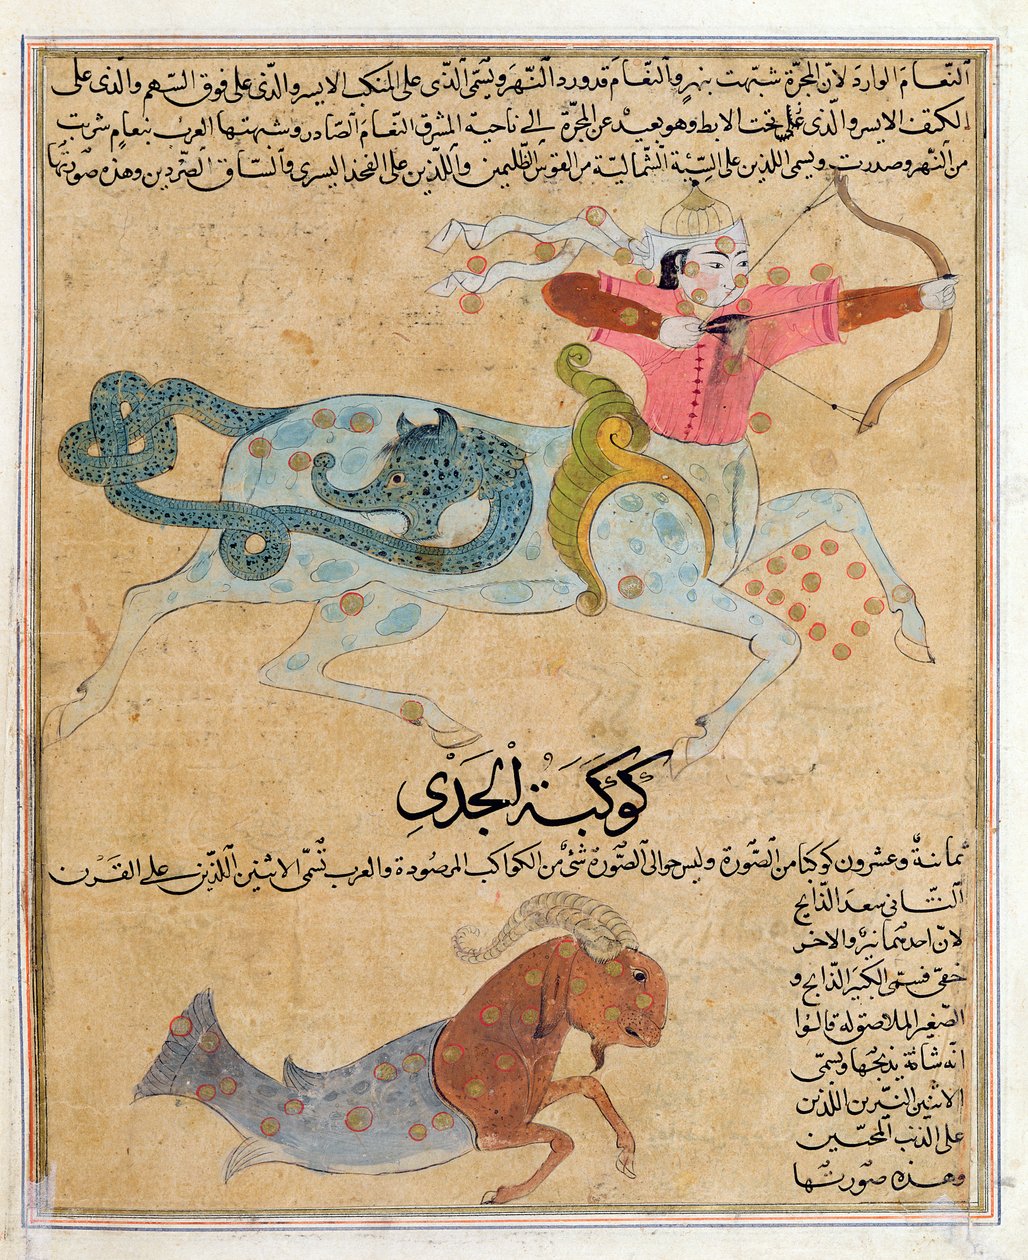 النعام الوارد لان المجرة شبهت بنهر والنعام قد ورد النهر ويسمى الذى على المنكب الايسر والذى على فوق السهم والذى على
الكتف الايسر والذى على تحت الابط وهو بعيد عن المجرة الى ناحية المشرق النعام الصادر وشبهتها العرب بنعام شربت
من النهر وصدرت ويسمى اللذين على السية الشمالية من القوس الظليمين واللذين على الفخذ اليسرى والساق الصردين وهذه صورتها
كوكبة الجدي
ثمانية وعشرون كوكبا من الصورة وليس حوالى الصورة شئ من الكواكب المرصودة والعرب تسمى الاثنين اللذين على القرن
الثاني سعد الذابح
لان احدهما نير والاخر
خفى فسمى الكبير الذابح و
الصغير الملاصق له قالوا
انه شاته يذبحها ويسمى
الاثنين النيرين اللذين
على الذنب المحبين
وهذه صورتها